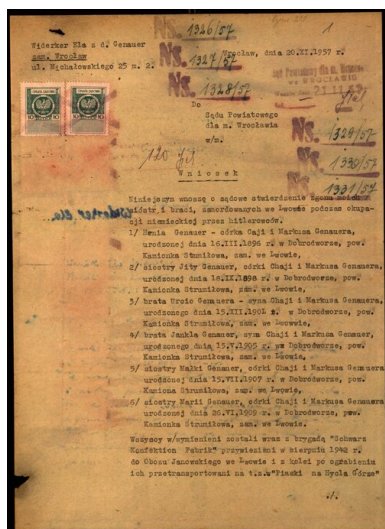 1
Ns. 1326/57
Widerker Ela z d. Genauer
zam. Wrocław
ul. Michałowskiego 25 m. 2.
Wrocław, dnia 20.XI.1957 r.
Ns. 1327/57
Ns. 1328/57
Sąd Powiatowy dla m.
we WROCŁAWIU
21.11.
Do
Sądu Powiatowego
dla m. Wrocławia
w/m.
Ns. 1329/57
Ns. 1330/57
Ns. 1331/57
120 zł
Wniosek
Niniejszym wnoszę o sądowe stwierdzenie zgonu moich
sióstr i braci, zamordowanych we Lwowie podczas okupa-
cji niemieckiej przez hitlerowców.
Widerker Ela.
1/ Henia Genauer - córka Caji i Markusa Genauera,
urodzonej dnia 16.III.1896 w Dobrodworze, pow.
Kamionka Stumiłowa, zam. we Lwowie,
2/ siostry Jity Genauer, córki Chaji i Markusa Genauera,
urodzonej dnia 18.IX.1898 r. w Dobrodworze, pow.
Kamionka Strumiłowa, zam. we Lwowie,
3/ brata Uroie Genauera - syna Chaji i Markusa Genauer,
urodzonego dnia 15.XII.1901 r. w Dobrodworze, pow.
Kamionka Strumiłowa, zam. we Lwowie,
4/ brata Jankla Genauer, syna Chaji i Markusa Genauer,
urodzonego dnia 15.V.1905 r. w Dobrodworze, pow.
Kamionka Strumiłowa, zam. we Lwowie,
5/ siostry Małki Genauer, córki Chaji i Markusa Genauera
urodzonej dnia 15.VI.1907 r. w Dobrodworze, pow.
Kamiona Strumiłowa, zam. we Lwowie,
6/ siostry Marii Genauer, córki Chaji i Markusa Genauera
urodzonej dnia 26.VI.1909 r. w Dobrodworze, pow.
Kamionka Strumiłowa, zam. we Lwowie.
Wszyscy w/wymienieni zostali wraz z brygadą "Schwarz
Konfektion Fabrik" przywiezieni w sierpniu 1942 r.
do Obozu Janowskiego we Lwowie i z kolei po ograbieniu
ich przetransportowani na t.zw "Piaski na Hycla Górze"